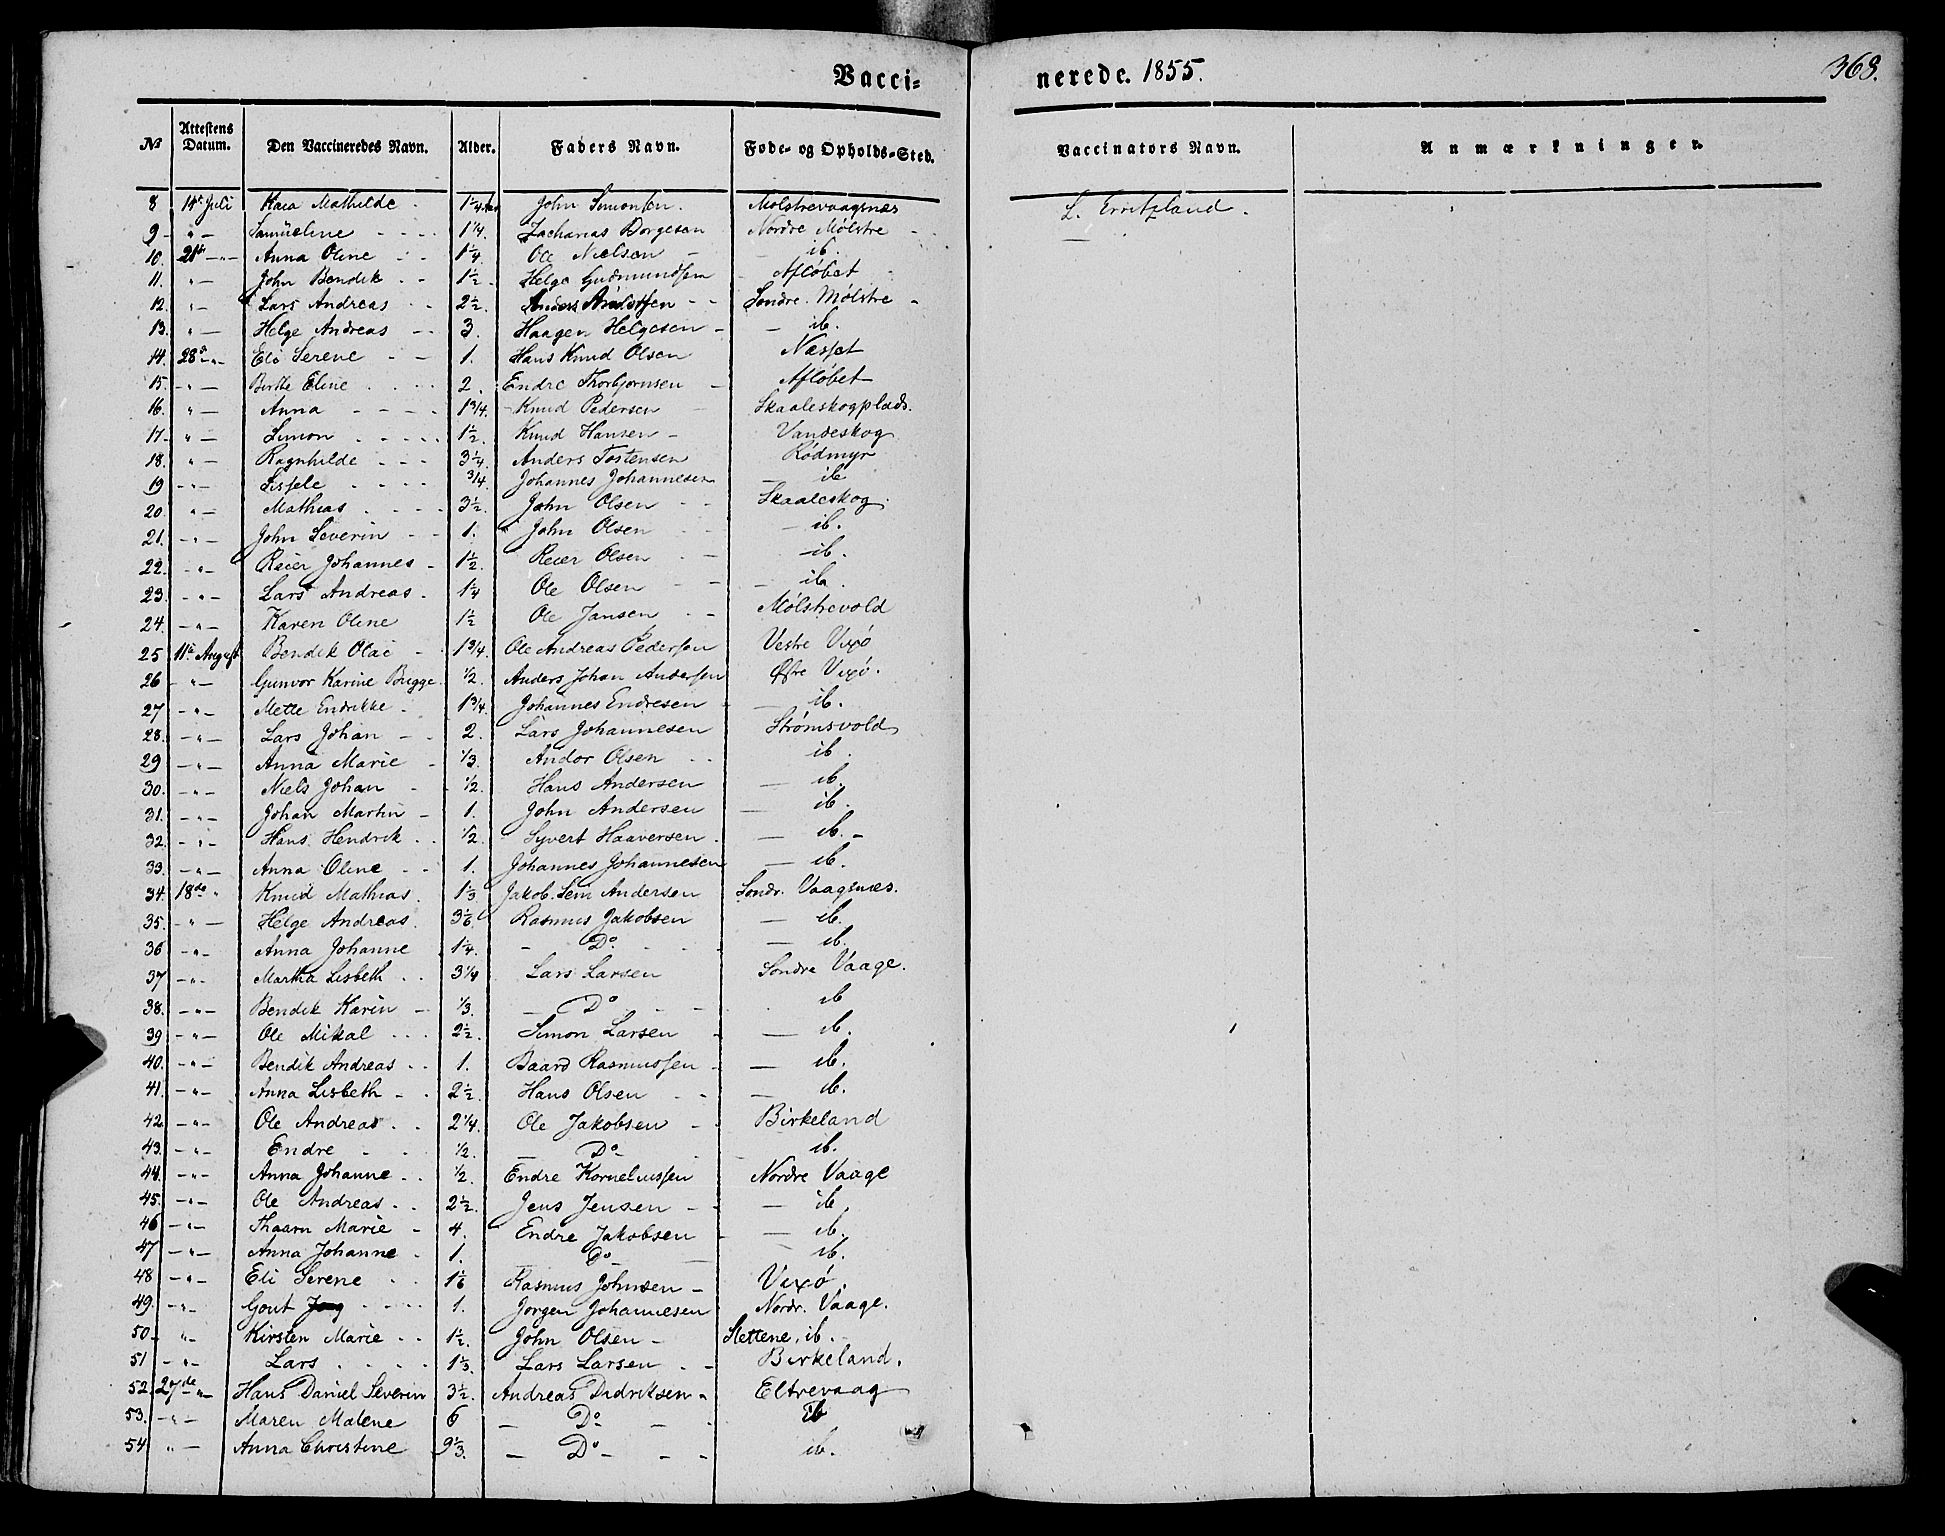 Vacci- nerede. 1855. 368.
№ Attestens Datum. Den Vaccineredes Navn. Alder. Faders Navn. Føde- og Opholds-Sted. Vaccinators Navn. Anmærkninger.
8 14de Juli Kaia Mathilde. 1¼ Aar John Simonsen. Mølstrevaagsnæs L. Erritzland.
9 - " - Samueline - - - - 1¼. Zacharias Borgesen Nordre Mølstre -
10. 21de - " - Anna Oline - - 1¼. Ole Nielsen - - ib.
11. " - John Bendik - - 1½. Helge Gudmundsen Afløbet -
12. " - Lars Andreas - - 2½. Anders - - Søndre. Mølstre -
13. " - Helge Andreas - - 3. Haagen Helgesen - - ib.
14. 28de - " - Eli Serene - - 1. Hans Knud Olsen Næsset
15. - " - Birthe Eline - - - - 2. Endre Thorbjørnsen - Afløbet
16. " - Anna - - - - 1¾. Knud Pedersen - Skaaleskogplads.
17. - " - Simon - - - - - 1½. Knud Hansen - Vandeskog
18. " - Ragnhilde - - - 3¼. Anders Tostensen Rødmyr
19 - " - Sissele - - - - ¾. Johannes Johannesen - ib
20. " - Mathias - - - - 3½. John Olsen - - Skaaleskog.
21. - " - John Severin - - 1. John Olsen - - - ib.
22. - " - Reier Johannes - 1½. Reier Olsen - - - ib.
23. - " - Lars Andreas - 1¼ Ole Olsen - - - ib.
24. - " - Karen Oline 1½ Ole Jansen - - Mølstrevold
25 11te August Bendik Olai - 1¾. Ole Andreas Pedersen Vestre Vixø
26 - " - Gunvor Karine Brygge. ½. Anders Johan Andersen Østre Vixø.
27 - " - Mette Endrikke - 1¾. Johannes Endresen - - ib.
28. - " - Lars Johan - - 2. Lars Johannesen Strømsvold
29 - " - Anna Marie - ⅓. Andor Olsen - - ib.
30. - " - Niels Johan - - ½. Hans Andersen - ib.
31. - " - Johan Martin - 1. John Andersen - ib.
32. - " - Hans Hendrik - - ½. Syvert Haaversen - - ib. -
33. - " - Anna Oline - - 1. Johannes Johannesen - ib.
34. 18de " Knud Mathias. 1⅓ Jakob. Sem Andersen Søndr. Vaagsnæs.
35. - " - Helge Andreas. 3⅙. Rasmus Jakobsen - ib.
36 - " - Anna Johanne 1¼. - Do. - - - ib.
37 - " - Martha Lisbeth - - 3¼ Lars Larsen Søndre Vaage.
38. - " - Bendik Karin - ⅓. - Do - - ib
39 - " - Ole Mikal - - - 2½. Simon Larsen - - ib.
40. - " - Bendik Andreas - - 1. Baard Rasmussen - - ib.
41. - " - Anna Lisbeth - - 2½. Hans Olsen - - - ib.
42. - " - Ole Andreas - - 2¼. Ole Jakobsen - - Birkeland
43. - " - Endre - - - ½. - Do - - ib.
44. - " - Anna Johanne - - ½. Endre Korneliussen Nordre Vaage
45. - " - Ole Andreas - - 2½. Jens Jensen - - - ib.
46 - " - Thaarn Marie - 4. Endre Jakobsen - - ib.
47 - " - Anna Johanne - 1. - Do - - ib.
48 - " - Eli Serene - - 1⅙ Rasmus Johnsen - Vixø.
49. - " - Gout - - - - 1. Jørgen Johannesen Nordr. Vaage.
50. " - Kirsten Marie - - 1½. John Olsen - Slettene, ib.
51 - " - Lars - - - - 1⅓. Lars Larsen - - Birkeland.
52. 27de " - Hans Daniel Severin 3½. Andreas Didriksen - Eltrevaag
53. - " - Maren Malene 6 - Do - - ib
54 " - Anna Christine 9⅓. - Do - - - ib.